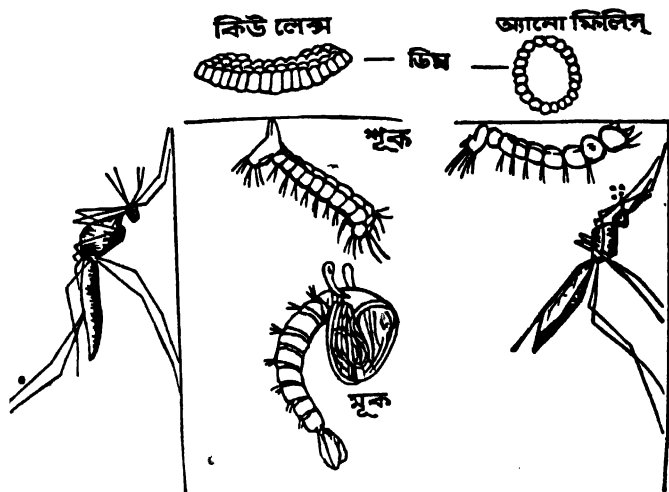 কিউ লেক্স
অ্যানো ফিলিস্
ডিম্ব
শূক
মূক